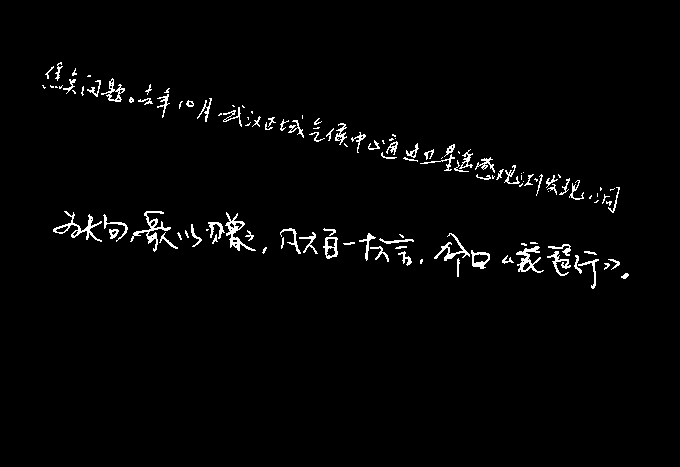 焦点问题。去年10月武汉区域气候中心通过卫星遥感观测发现,洞
为长句,歌以赠之,凡六百一十六言,命曰《琵琶行》。